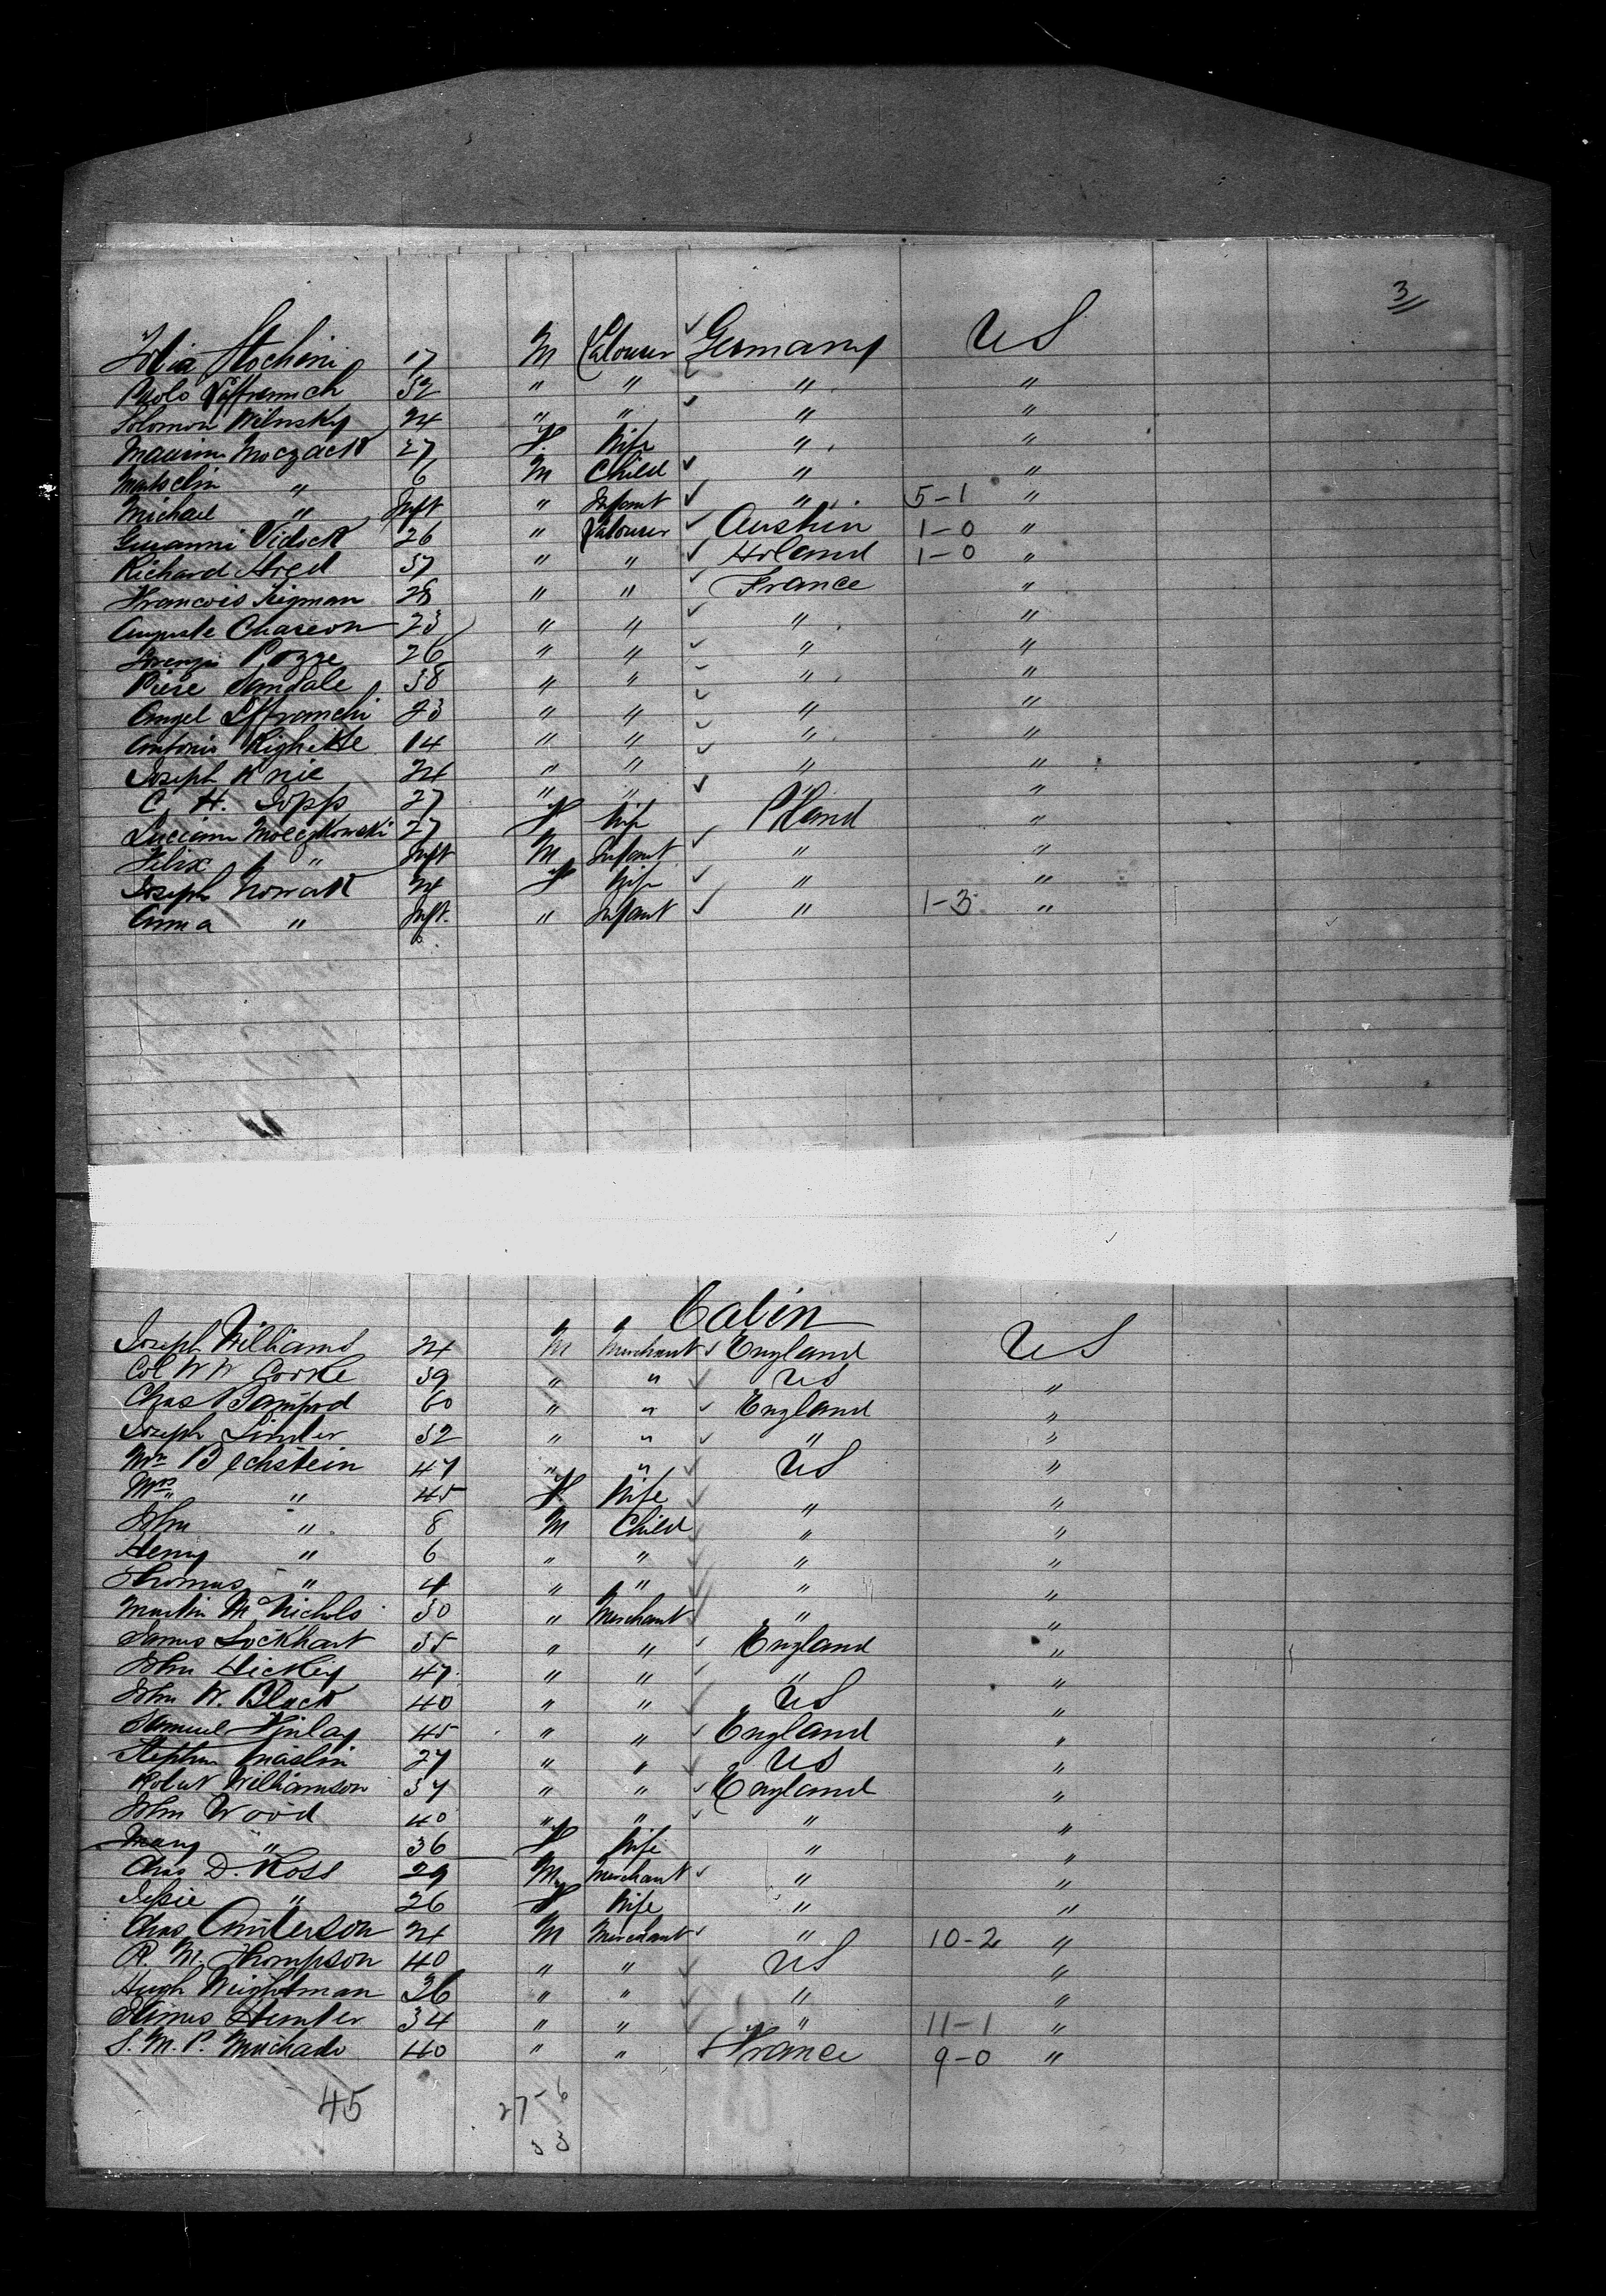 3
Stochini 17 M Labourer Germany US
Paolo 32 " " " "
Solomon Wilnsky 24 " " " "
Moczack 27 F. Wife " "
" 6 M Child " "
Michael " Inft " Infant " 5-1 "
Vidock 26 " Labourer Austria 1-0 "
Richard 37 " " Holand 1-0 "
Francois 28 " " France "
Auguste Chareon 23 " " " "
Lorenzo Pozze 26 " " " "
Piere Sandale 38 " " " "
Angel 23 " " " "
Antonio Righette 14 " " " "
Joseph Knie 24 " " " "
C. H. Jopp 27 " " " "
Moczkowski 27 F Wife Poland "
Felix " Inft M Infant " "
Joseph Nowak 24 F Wife " "
Anna " Inft. " Infant " 1-3 "
Cabin
Joseph Williams 24 M Merchant England US
Col W W Cooke 39 " " US "
Chas Bamford 60 " " England "
Joseph Linder 32 " " " "
Mr Bechstein 47 " " US "
Mrs " 45 F Wife " "
John " 8 M Child " "
Henry " 6 " " " "
Thomas " 4 " " " "
Martin McNichols 30 " Merchant " "
James Lockhart 35 " " England "
John Hickey 47 " " " "
John W. Black 40 " " US "
Samuel Finlay 45 " " England "
Stephen Maslin 27 " " US "
Robert Williamson 37 " " England "
John Wood 40 " " " "
Mary " 36 F Wife " "
Chas D. Ross 29 M Merchant " "
Jessie " 26 F Wife " "
Chas Anderson 24 M Merchant " 10-2 "
R. M. Thompson 40 " " US "
Hugh Weightman 36 " " " "
James Hunter 34 " " " 11-1 "
S. M. P. Machado 40 " " France 9-0 "
45 27-6
33